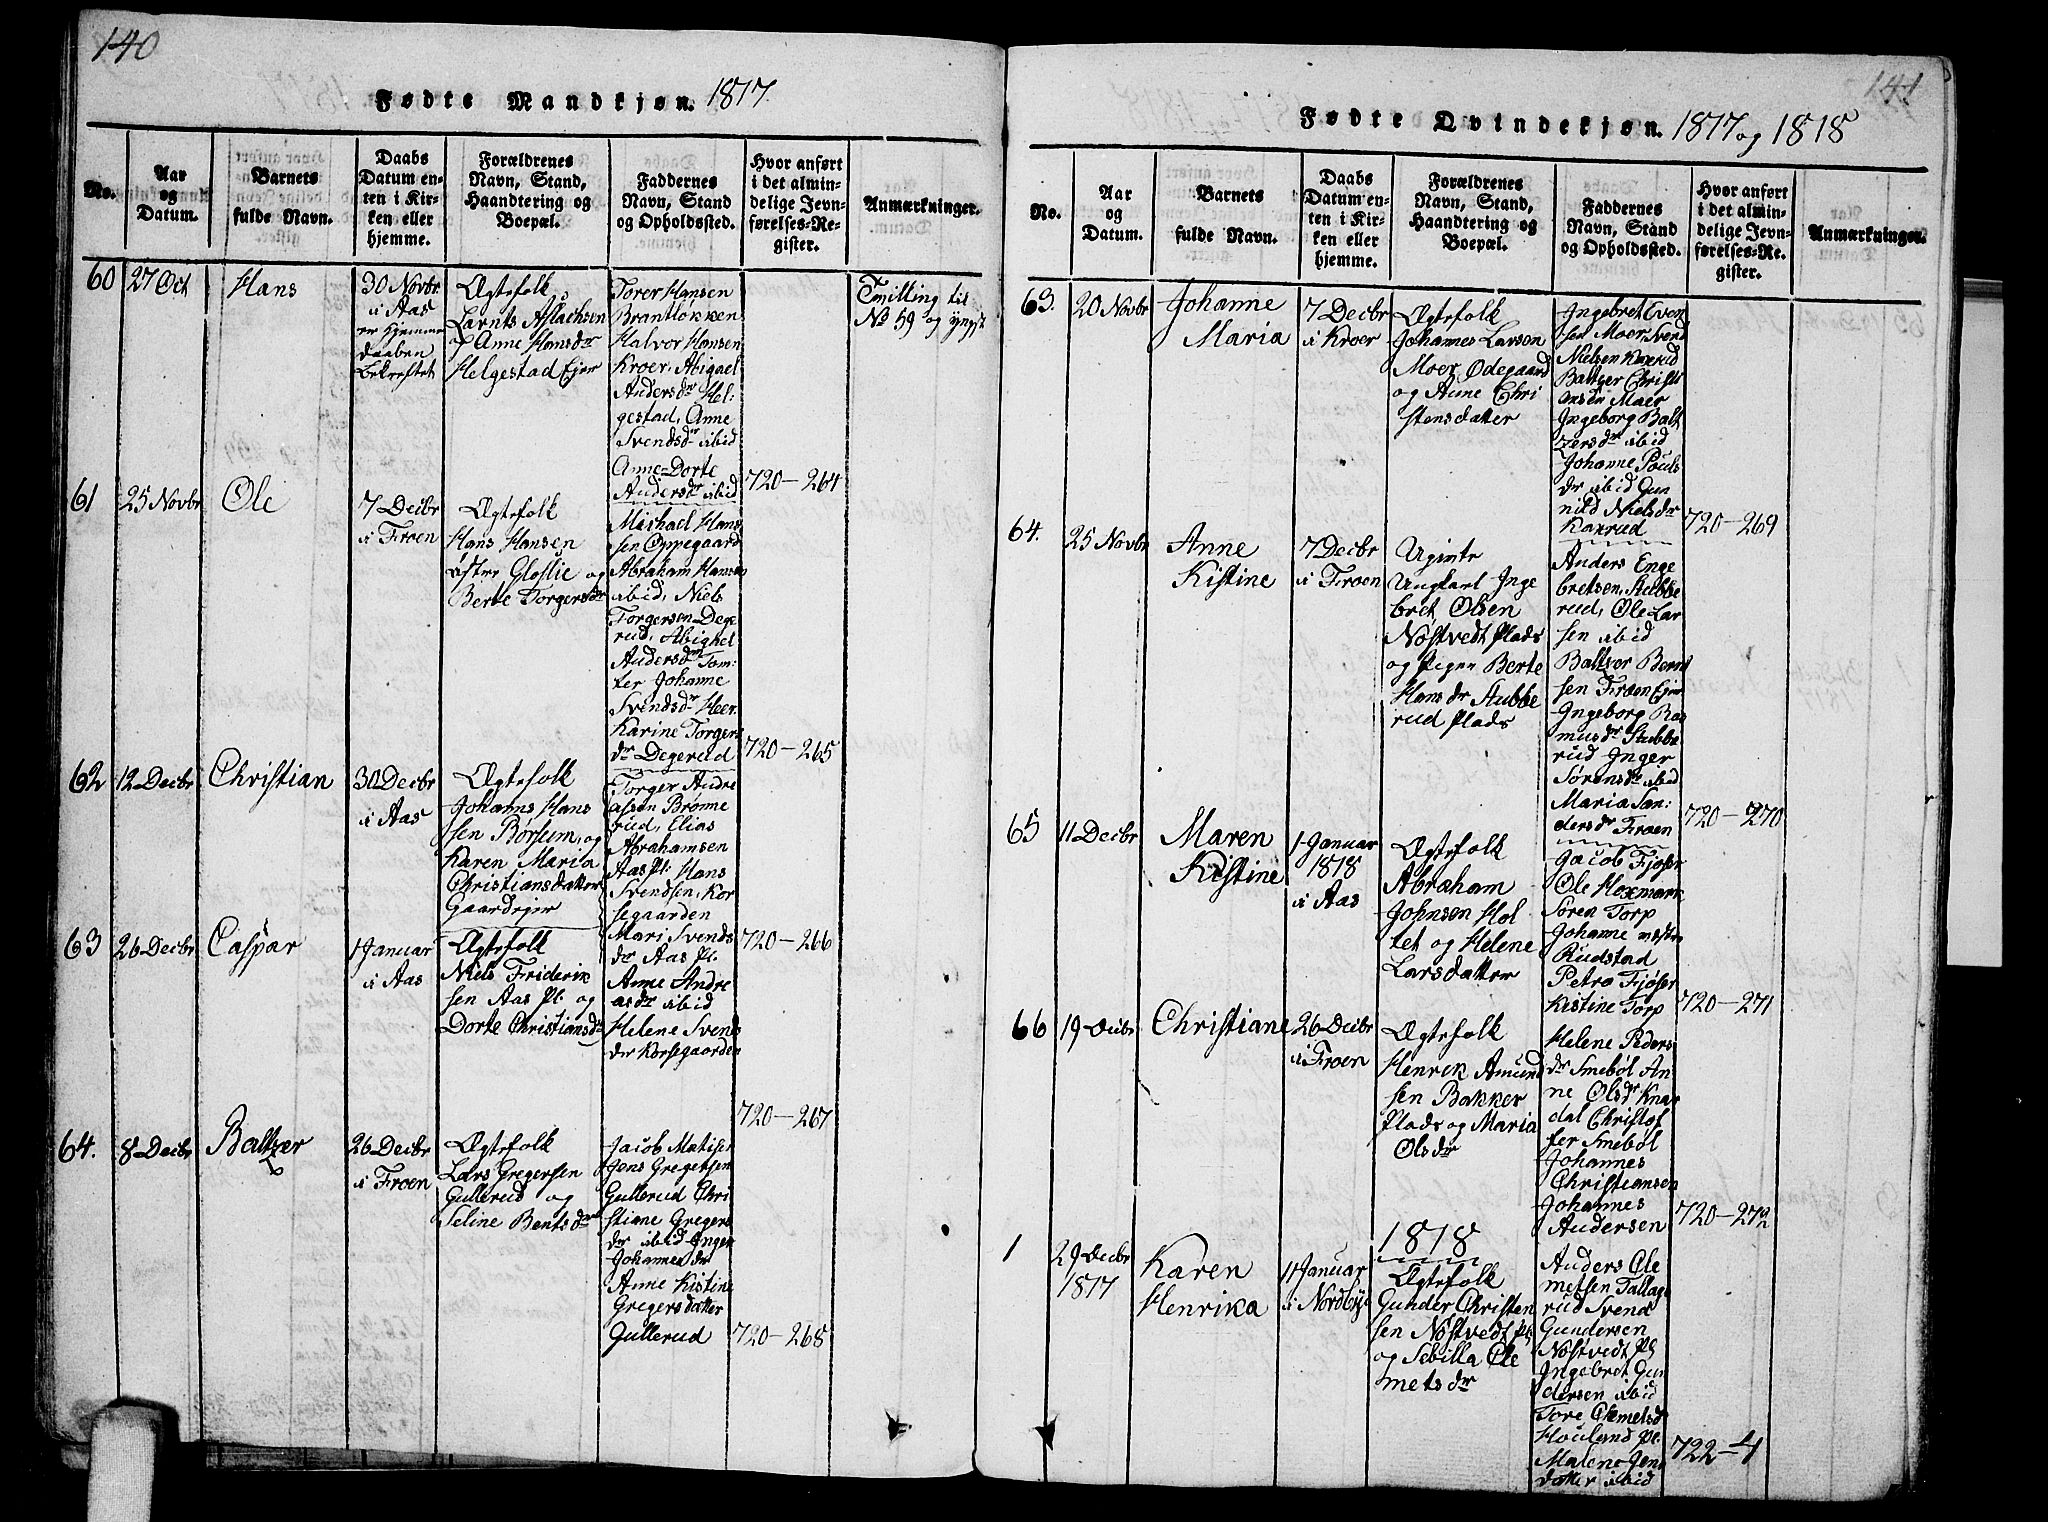 140
Fødte Mandkjøn. 1817.
No.
Aar
og
Datum.
Barnets
fulde Navn.
Daabs
Datum en-
ten i Kir-
ken eller
hjemme.
Forældrenes
Navn, Stand,
Haandtering og
Boepæl.
Faddernes
Navn, Stand
og Opholdssted.
Hvor anført
i det almin-
delige Jevn-
førelses-Re-
gister.
Anmærkninger.
60
27 Oct
Hans
30 Novbr
i Aas
er Hjemme
daaben
bekreftet
Ægtefolk
Larnts Aslachsen
Anne Hansdr
Helgestad Ejer
Torer Hansen
Brantløkken
Halvor Hansen
Kroer, Abigael
Andersdr Hel-
gestad, Anne
Svendsdr ibid
Anne Dorte
Andersdr ibid
720-264
Tvilling til
No 59 og yngst
61
25 Novbr
Ole
7 Decbr
i Froen
Ægtefolk
Hans Hansen
østre Gloslie og
Berte Torgersdr
Michael Han-
sen Oppegaard
Abraham Hansen
ibid, Niels
Torgersen Dege
rud, Abighel
Andersdr Tom-
ter Johanne
Svendsdr Heer
Karine Torgers
dr Degerud
720-265
62
12 Decbr
Christian
30 Decbr
i Aas
Ægtefolk
Johanns Hans
sen Børsum, og
Karen Maria
Christiansdatter
Gaardejer
Torger Andre
assen Brønne
rud, Elias
Abrahamsen
Aas Pl. Hans
Svendsen, Kor
segaarden
Mari Svends
dr Aas Pl.
Anne Andre
asdr ibid
Helene Svends
dr Korsegaarden
720-266
63
26 Decbr
Caspar
1 Januar
i Aas
Ægtefolk
Niels Friderik
sen Aas Pl. og
Dorte Christiansdr
720-267
64.
8 Decbr
Baltzer
26 Decbr
i Froen
Ægtefolk
Lars Gregersen
Gullerud og
Seline Bentsdr
Jacob Matisen
Jens Gregersen
Gullerud Chri
stiane Gregers
dr ibid Inger
Johannesdr
Anne Kistine
Gregersdatter
Gullerud
720-268
141
Fødte Qvindekjøn. 1817 og 1818
No.
Aar
og
Datum.
Barnets
fulde Navn.
Daabs
Datum en-
ten i Kir-
ken eller
hjemme.
Forældrenes
Navn, Stand,
Haandtering og
Boepæl.
Faddernes
Navn, Stand
og Opholdssted.
Hvor anført
i det almin-
delige Jevn-
førelses-Re-
gister.
Anmærkninger.
63.
20 Novbr
Johanne
Maria
7 Decbr
i Kroer
Ægtefolk
Johannes Larsen
Moer Ødegaard
og Anne Chri
stensdatter
Ingebret Even
sen Moer Svend
Nielsen Kaxrud
Baltzer Christi
ansen Moer
Ingeborg Balt
zersdr ibid
Johanne Pouls
dr ibid Gun
nild Nielsdr
Kaxrud
720-269
64.
25 Novbr
Anne
Kistine
7 Decbr
i Froen
Ugivte
Ungkarl Inge
bret Olsen
Nøstvedt Plads
og Pigen Berte
Hansdr Stubbe
rud Plads
Anders Enge
bretsen, Stubbe
rud, Ole Lar
sen ibid
Baltzer Bernt
sen Froen Ejer
Ingeborg Ras
musdr Stubbe
rud Inger
Sørensdr ibid
Maria San-
dersdr Froen
720-270
65
11 Decbr
Maren
Kistine
1 Januar
1818
i Aas
Ægtefolk
Abraham
Johnsen Hol
tet og Helene
Larsdatter
Jacob Fjøser
Ole Hoxmark
Søren Torp
Johanne vestre
Rudstad
Petro Fjøser
Kistine Torp
720-271
66
19 Decbr
Christiane
26 Decbr
i Froen
Ægtefolk
Henrik Amund
sen Bakker
Plads og Maria
Olsdr
Helene Peders
dr Smebøl An
ne Olsdr Knar
dal Christof
fer Smebøl
Johannes
Christiansen
Johannes
Andersen
720-272
1818
1
29 Decbr
1817
Karen
Henrika
11 Januar
i Nordbye
Ægtefolk
Gunder Christen
sen Nøstvedt Pl
og Sebilla Cle
metsdr
Anders Cle
metsen Tallag
rud Svend
Gundersen
Nøstvedt Pl
Ingebret Gun
dersen ibid
Tore Clemetsd
Houland Pl.
Malene Jens
datter ibid
722-1